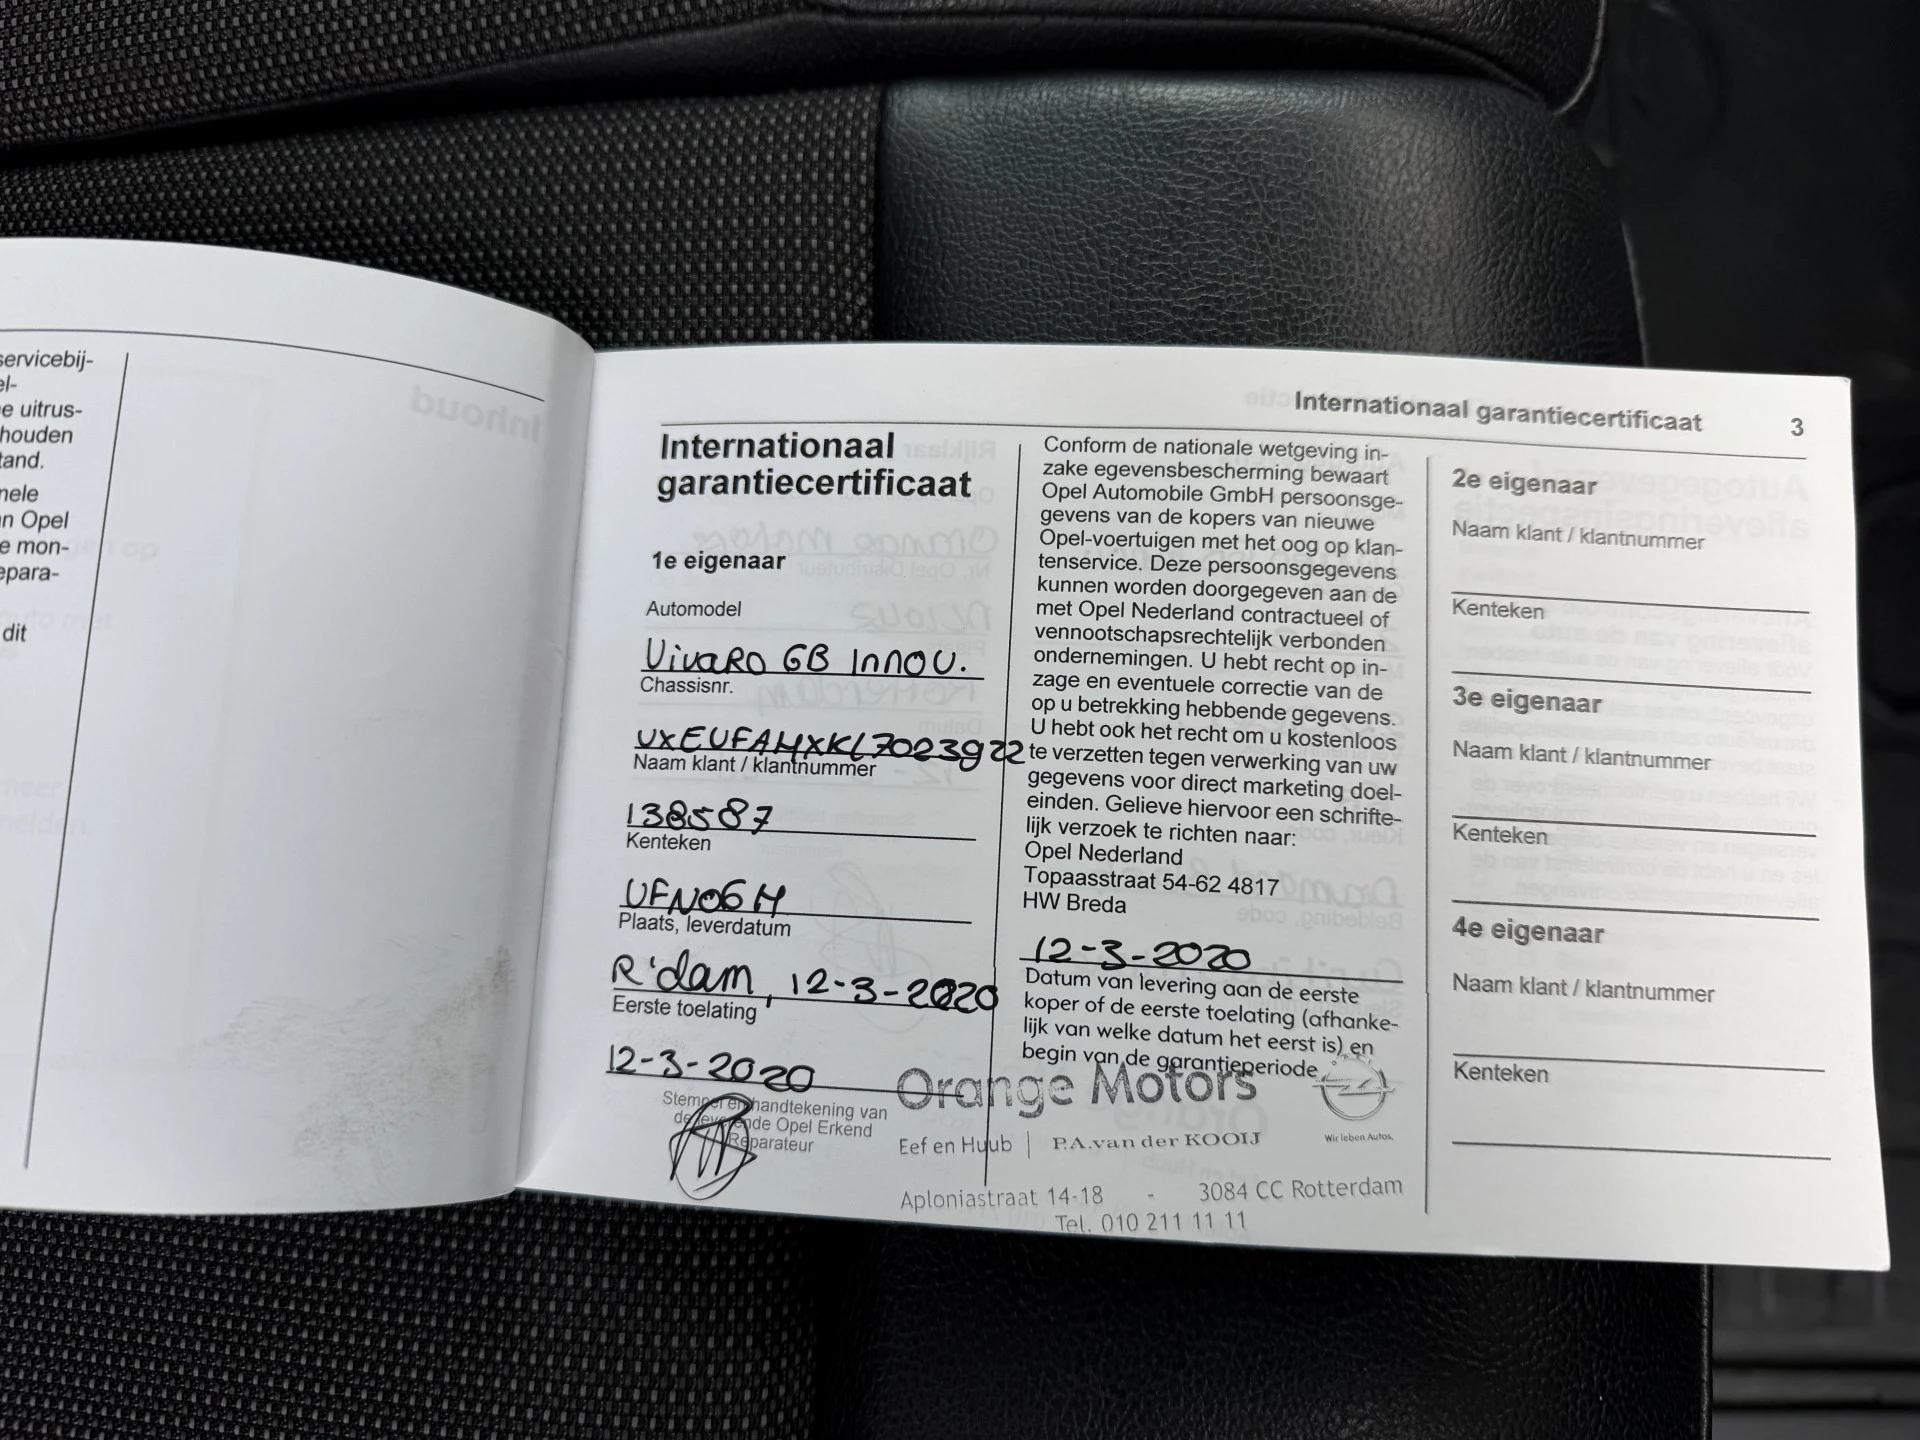 servicebij-
el-
e uitrus-
houden
tand.
nele
n Opel
e mon-
epara-
dit
Internationaal garantiecertificaat 3
Internationaal
garantiecertificaat
1e eigenaar
Automodel
Vivaro GB Innov.
Chassisnr.
VXEVFAHXKL7023922
Naam klant / klantnummer
138587
Kenteken
VFN06H
Plaats, leverdatum
R'dam, 12-3-2020
Eerste toelating
12-3-2020
Stempel en handtekening van
de leverende Opel Erkend
Reparateur
Conform de nationale wetgeving in-
zake egevensbescherming bewaart
Opel Automobile GmbH persoonsge-
gevens van de kopers van nieuwe
Opel-voertuigen met het oog op klan-
tenservice. Deze persoonsgegevens
kunnen worden doorgegeven aan de
met Opel Nederland contractueel of
vennootschapsrechtelijk verbonden
ondernemingen. U hebt recht op in-
zage en eventuele correctie van de
op u betrekking hebbende gegevens.
U hebt ook het recht om u kostenloos
te verzetten tegen verwerking van uw
gegevens voor direct marketing doel-
einden. Gelieve hiervoor een schrifte-
lijk verzoek te richten naar:
Opel Nederland
Topaasstraat 54-62 4817
HW Breda
12-3-2020
Datum van levering aan de eerste
koper of de eerste toelating (afhanke-
lijk van welke datum het eerst is) en
begin van de garantieperiode
Orange Motors
Eef en Huub | P.A.van der KOOIJ
Wir leben Autos.
Aploniastraat 14-18 - 3084 CC Rotterdam
Tel. 010 211 11 11
2e eigenaar
Naam klant / klantnummer
Kenteken
3e eigenaar
Naam klant / klantnummer
Kenteken
4e eigenaar
Naam klant / klantnummer
Kenteken